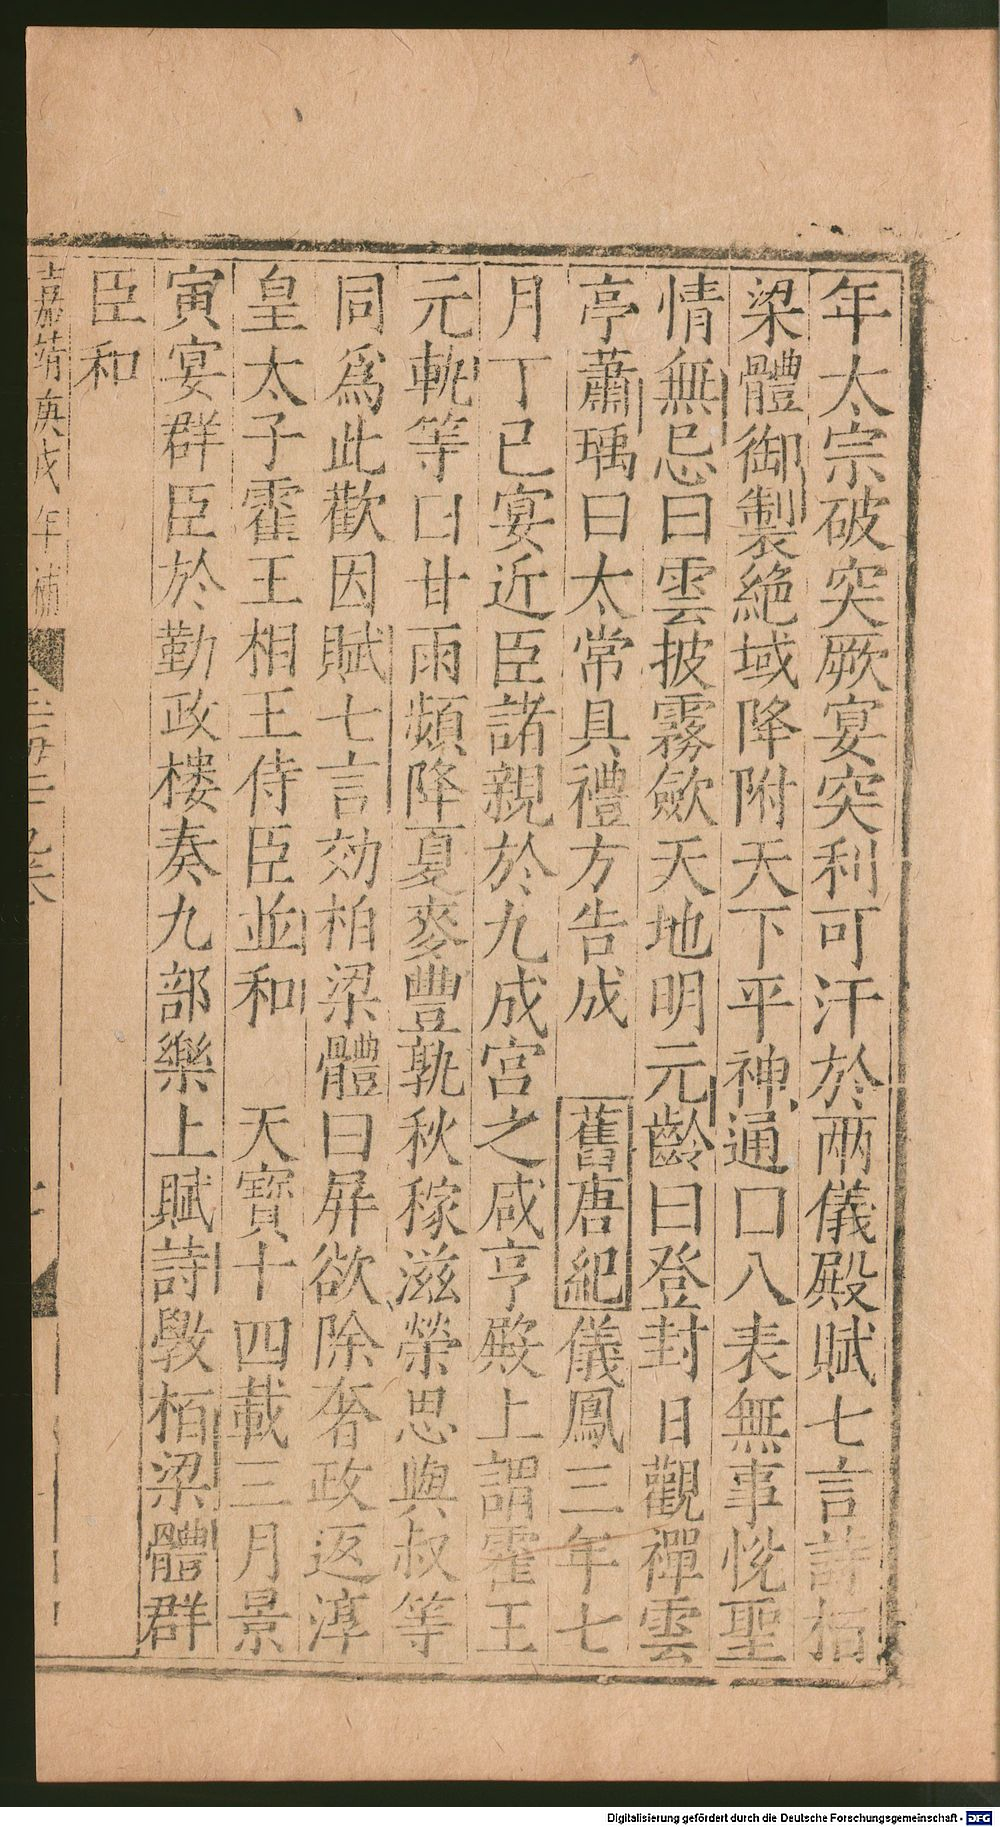 年太宗破突厥宴突利可汗於兩儀殿賦七言詩栢
梁體御製絶域降附天下平神通口八表無事悅聖
情無忌曰雲披霧歛天地明元齡曰登封日觀禪雲
亭蕭瑀曰太常具禮方告成 舊唐紀儀鳳三年七
月丁巳宴近臣諸親於九成宮之咸亨殿上謂霍王
元軌等曰甘雨頻降夏麥豐孰秋稼滋榮思與叔等
同爲此歡因賦七言効柏梁體曰屏欲除奢政返淳
皇太子霍王相王侍臣並和 天寶十四載三月景
寅宴群臣於勤政樓奏九部樂上賦詩斆栢梁體群
臣和
嘉靖庚戌年補
Digitalisierung gefördert durch die Deutsche Forschungsgemeinschaft - DFG